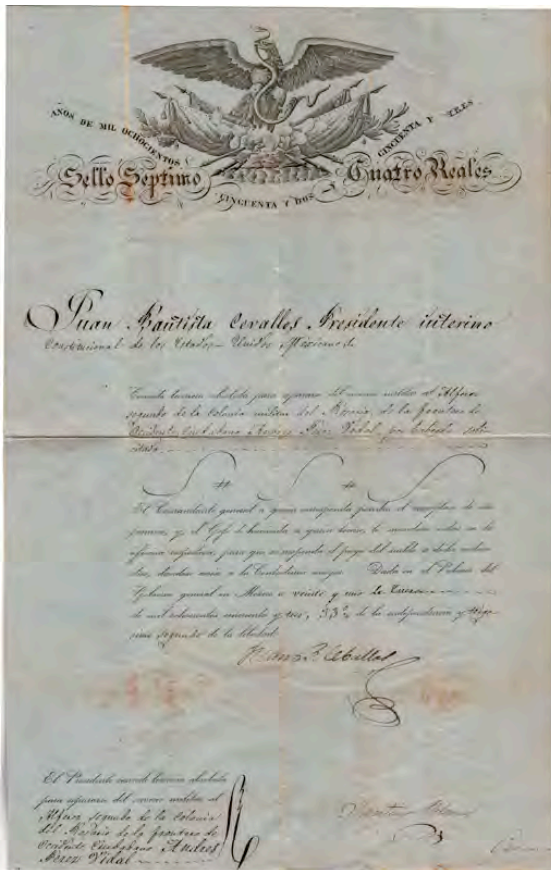 AÑOS DE MIL OCHOCIENTOS
CINCUENTA Y TRES
Sello Septimo
Cuatro Reales
CINCUENTA Y DOS Y
Juan Bautista Cevallos Presidente interino
Constitucional de los Estados Unidos Mexicanos
licencia absoluta para separarse del servicio militar al Alferez
segundo de la Colonia militar del Rosario, de la frontera de
Occidente Ciudadano Andres Perez Vidal, por haberla soli-
citado
El Comandante general a quien corresponda pondrá el cumplimiento de esta
y el Gefe de hacienda
para que se suspenda el pago del sueldo
Dada en el Palacio del
Gobierno general en Mexico a veinte y uno de Enero
de mil ochocientos cincuenta y tres, 33º de la independencia y trige-
simo segundo de la libertad.
Juan B. Ceballos
El Presidente concede licencia absoluta
para separarse del servicio militar al
Alferez segundo de la Colonia
del Rosario de la frontera de
Occidente Ciudadano Andres
Perez Vidal